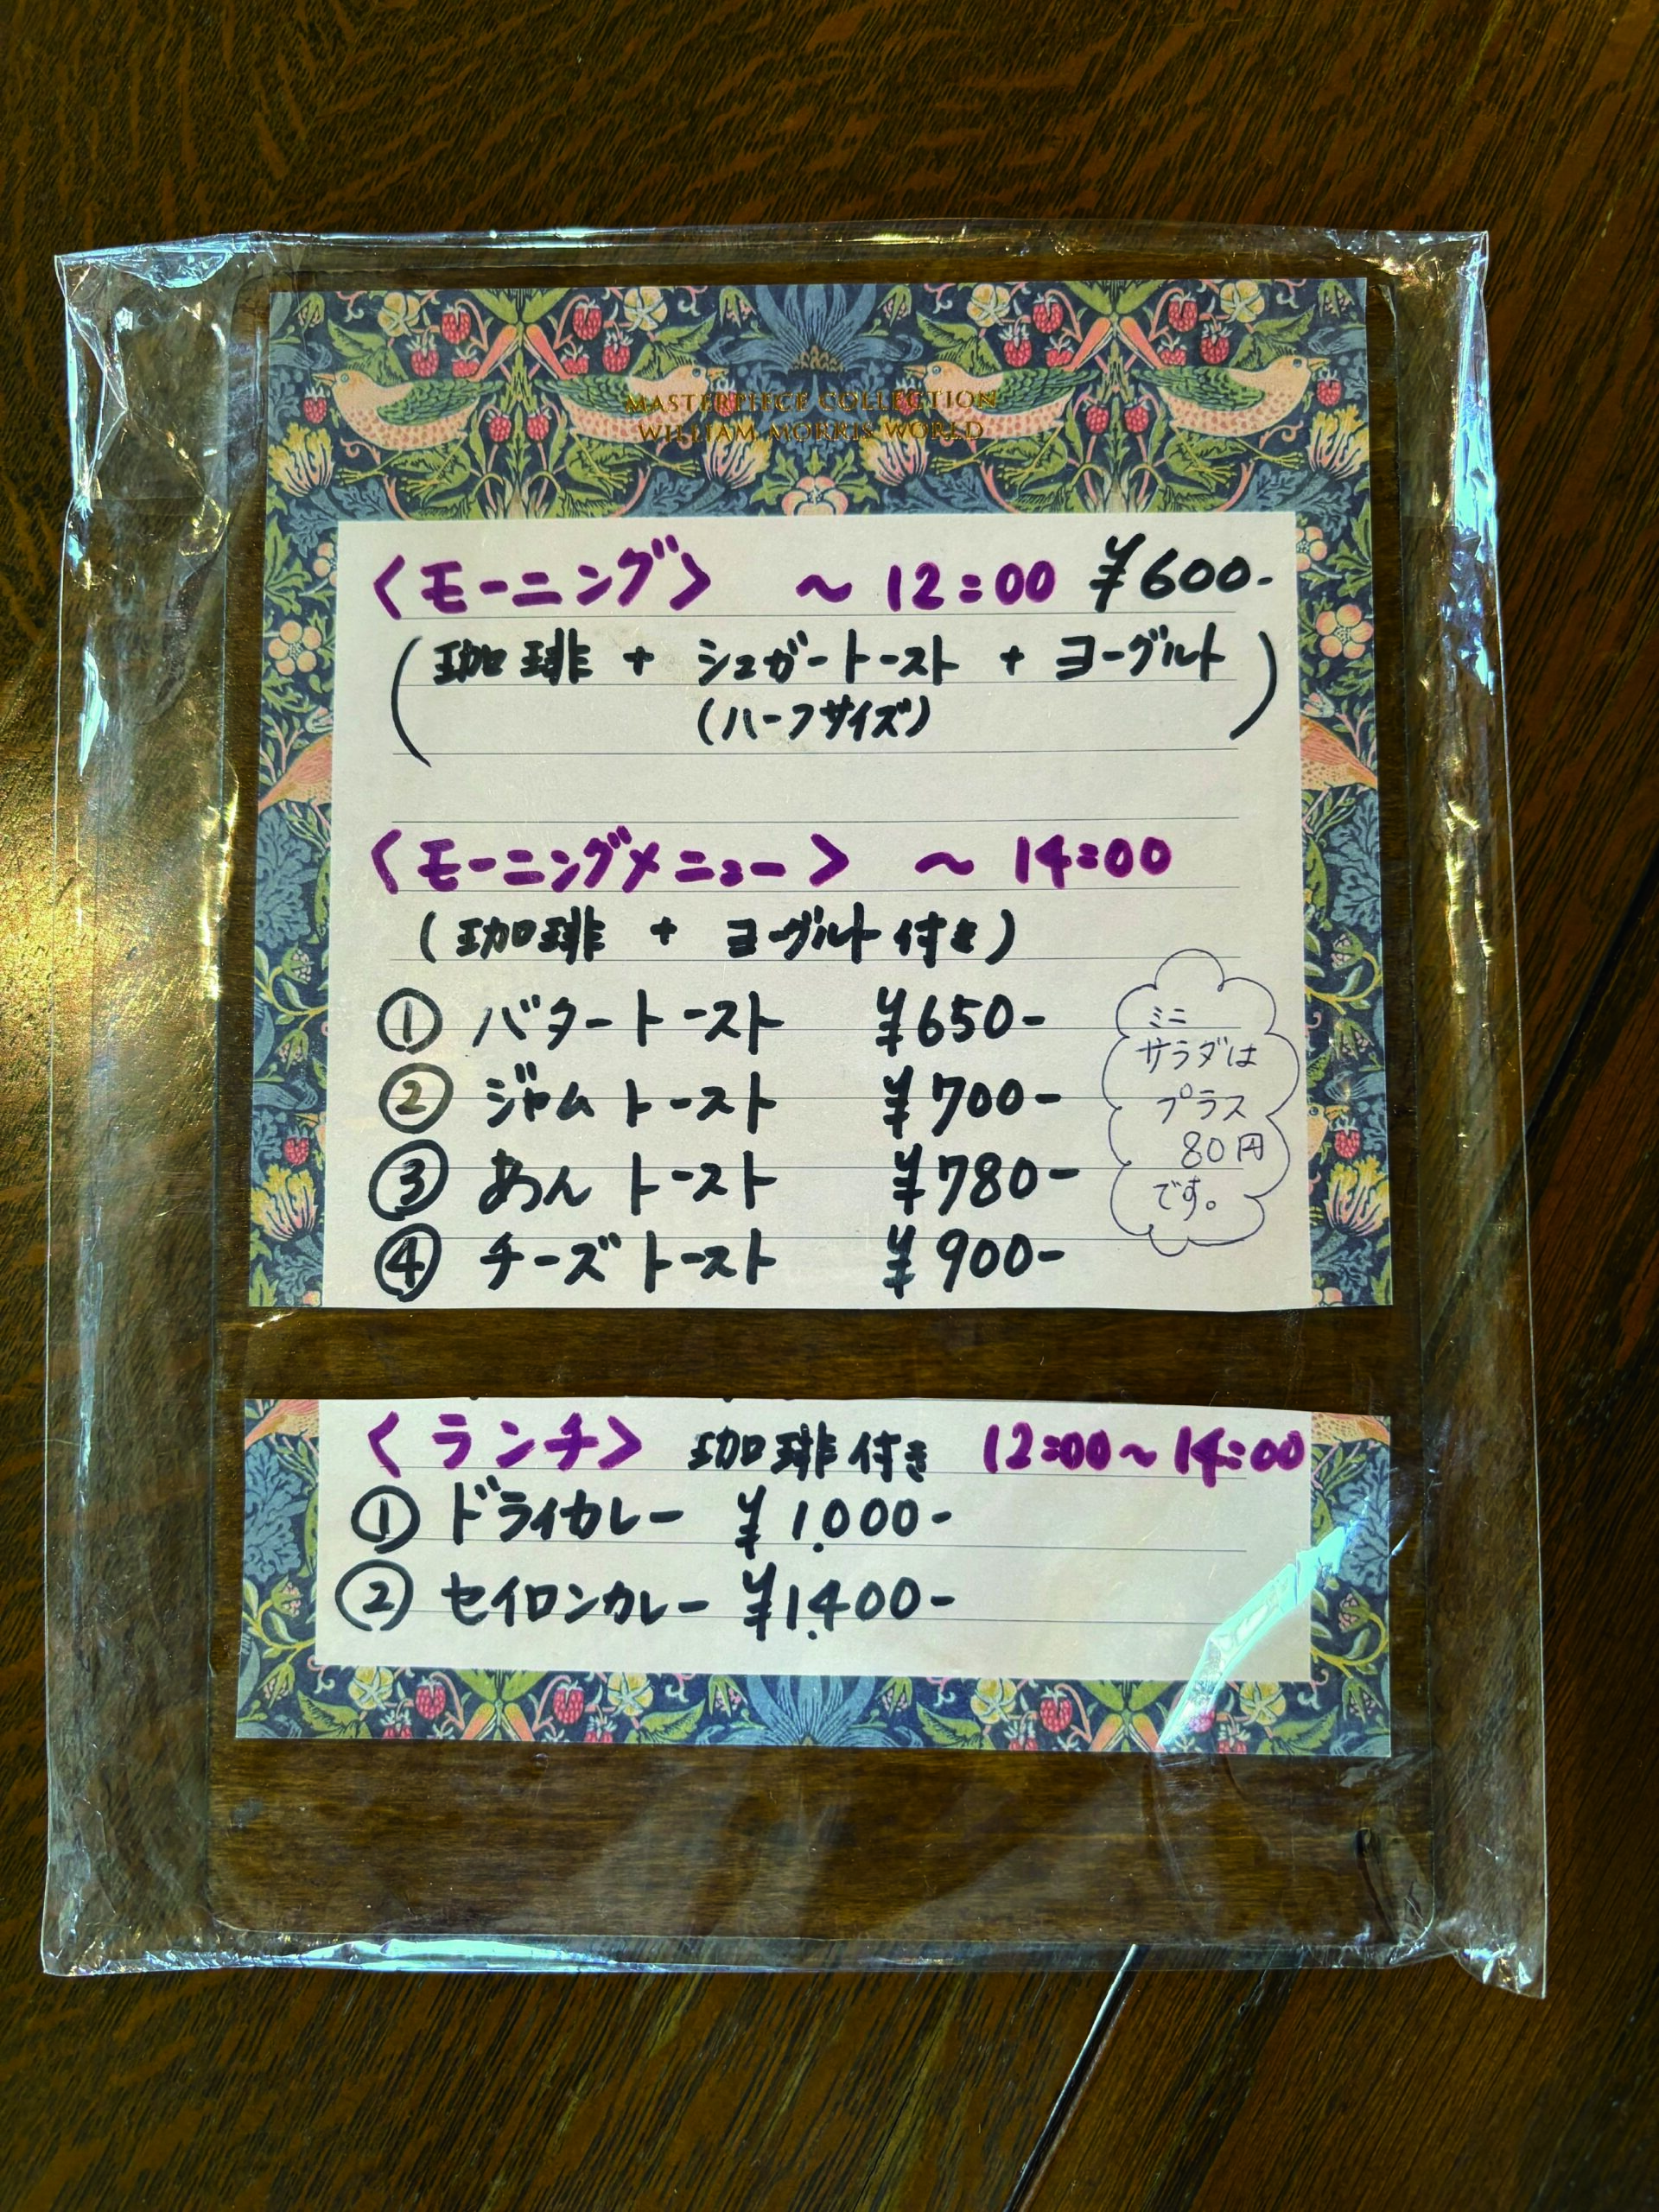 MASTERPIECE COLLECTION
WILLIAM MORRIS WORLD
〈モーニング〉 〜12:00 ¥600-
(珈琲 + シュガートースト + ヨーグルト)
(ハーフサイズ)
〈モーニングメニュー〉 〜14:00
(珈琲 + ヨーグルト付き)
① バタートースト ¥650-
② ジャムトースト ¥700-
③ あんトースト ¥780-
④ チーズトースト ¥900-
ミニ
サラダは
プラス
80円
です。
〈ランチ〉 珈琲付き 12:00〜14:00
① ドライカレー ¥1,000-
② セイロンカレー ¥1,400-